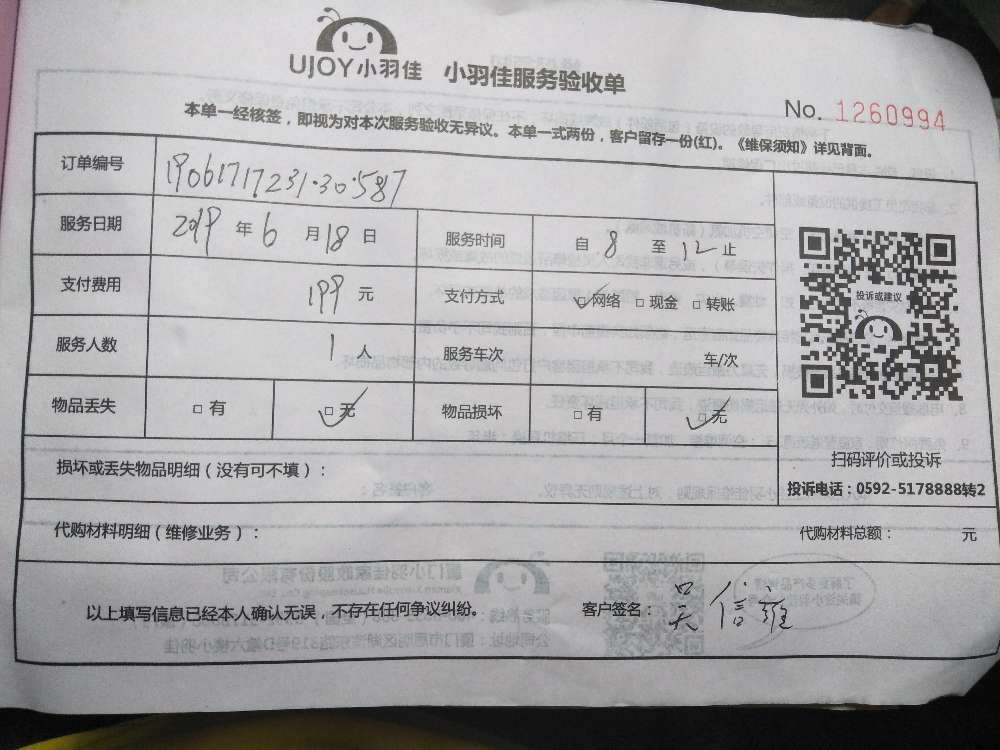 UJOY小羽佳 小羽佳服务验收单
No. 1260994
本单一经核签，即视为对本次服务验收无异议。本单一式两份，客户留存一份(红)。《维保须知》详见背面。
订单编号 19061717231·30·587
服务日期 2019 年 6 月 18 日 服务时间 自 8 至 12 止
支付费用 199 元 支付方式 ☑网络 □现金 □转账
服务人数 1 人 服务车次 车/次
物品丢失 □有 ☑无 物品损坏 □有 ☑无
投诉或建议
扫码评价或投诉
投诉电话：0592-5178888转2
损坏或丢失物品明细（没有可不填）：
代购材料明细（维修业务）： 代购材料总额： 元
以上填写信息已经本人确认无误，不存在任何争议纠纷。 客户签名：吴信雄